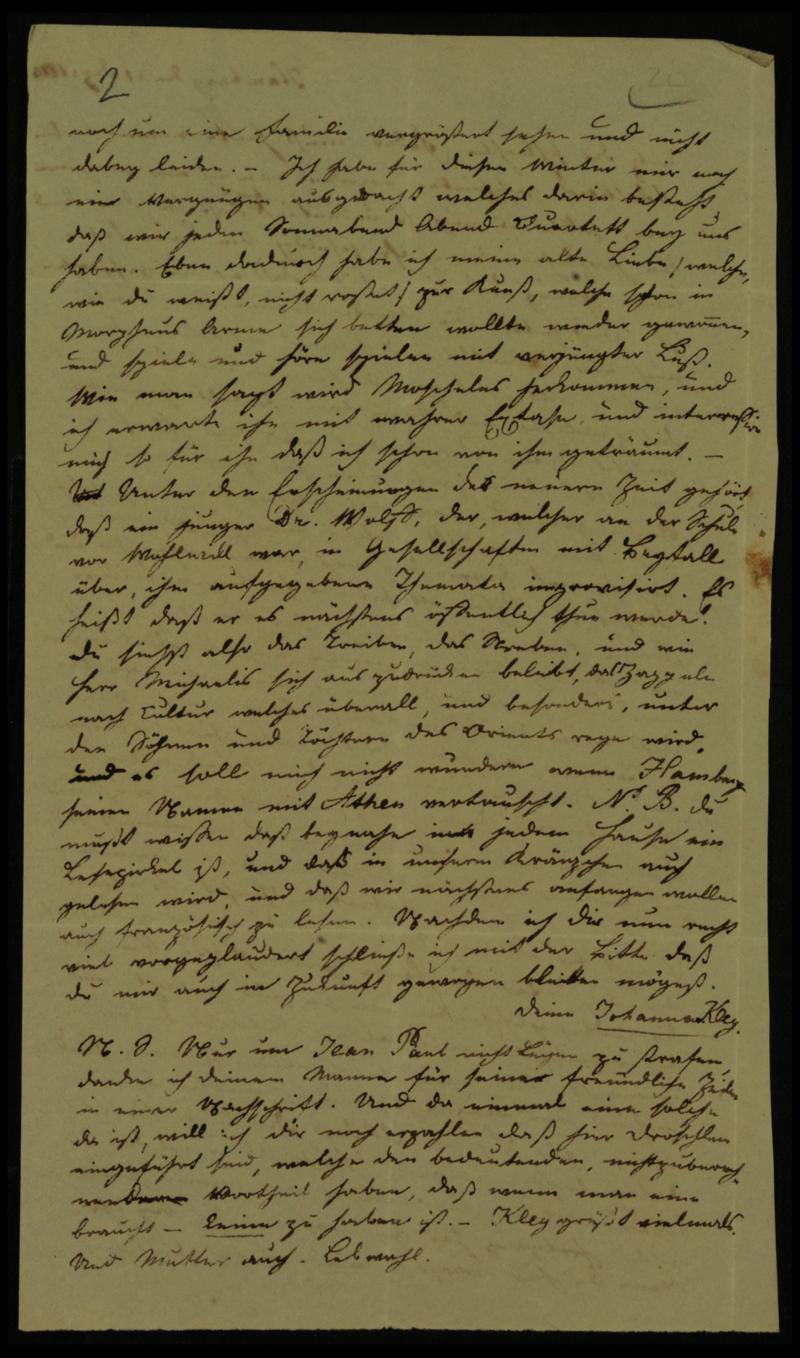 2
20
noch um eine Familie vergrößert sehen und nicht
dabey leiden. – Ich habe für diesen Winter mir noch
ein Vergnügen ausgedacht welches darin besteht
daß wir jeden Sonnabend Abend Quartett bey uns
haben. Eben dadurch habe ich meine alte Liebe /welche,
wie du weißt, nicht rostet/ zur Kunst, welche schon in
Morpheus Arme sich betten wollte wieder gewonnen,
und spiele und höre spielen mit verjüngter Lust.
Wie man sagt wird Moscheles herkommen, und
ich erwarte ihn mit wahrer Extase, und interressire
mich so für ihn daß ich schon von ihm geträumt. –
Unter den Erscheinungen der neuern Zeit gehört
daß ein junger Dr. Wolff, der, welcher an der Schule
vor Wohlwill war, in Gesellschaften mit Beyfall
über, ihm aufgegebene Themata improvisirt. Es
heißt daß er es nächstens öffentlich thun werde.
Du siehst also das Treiben, das Streben, und wie
Herr Michaelis sich auszudrücken beliebt, das Zappeln
nach Cultur welches überall, und besonders, unter
den Söhnen und Töchtern des Orients rege wird,
und es soll mich nicht wundern wenn Hamburg
seinen Namen mit Athen vertauscht. N. B. du
mußt wissen daß beynahe in jedem Hause ein
Lesezirkel ist, und daß in unserm Kränzchen auch
gelesen wird, und daß wir nächstens anfangen wollen
auch französisch zu lesen. Nachdem ich dir nun recht
viel vorgeplaudert schließe ich mit der Bitte daß
du mir auch in Zukunft gewogen bleiben mögest.
Deine Johanna Kley.
N. S. Nur um Jean Paul nicht Lügen zu strafen
danke ich deinem Manne für seine freundliche Zeilen
in einer Nachschrift. Und da einmal eine solche
da ist, will ich dir noch erzählen daß hier Droschken
eingeführt sind, welche den bedeutenden, nicht zu berech-
nenden Vortheil haben, daß wenn man eine
braucht – keine zu haben ist. – Kley grüßt vielmals.
Und Mutter auch. Lebwohl.